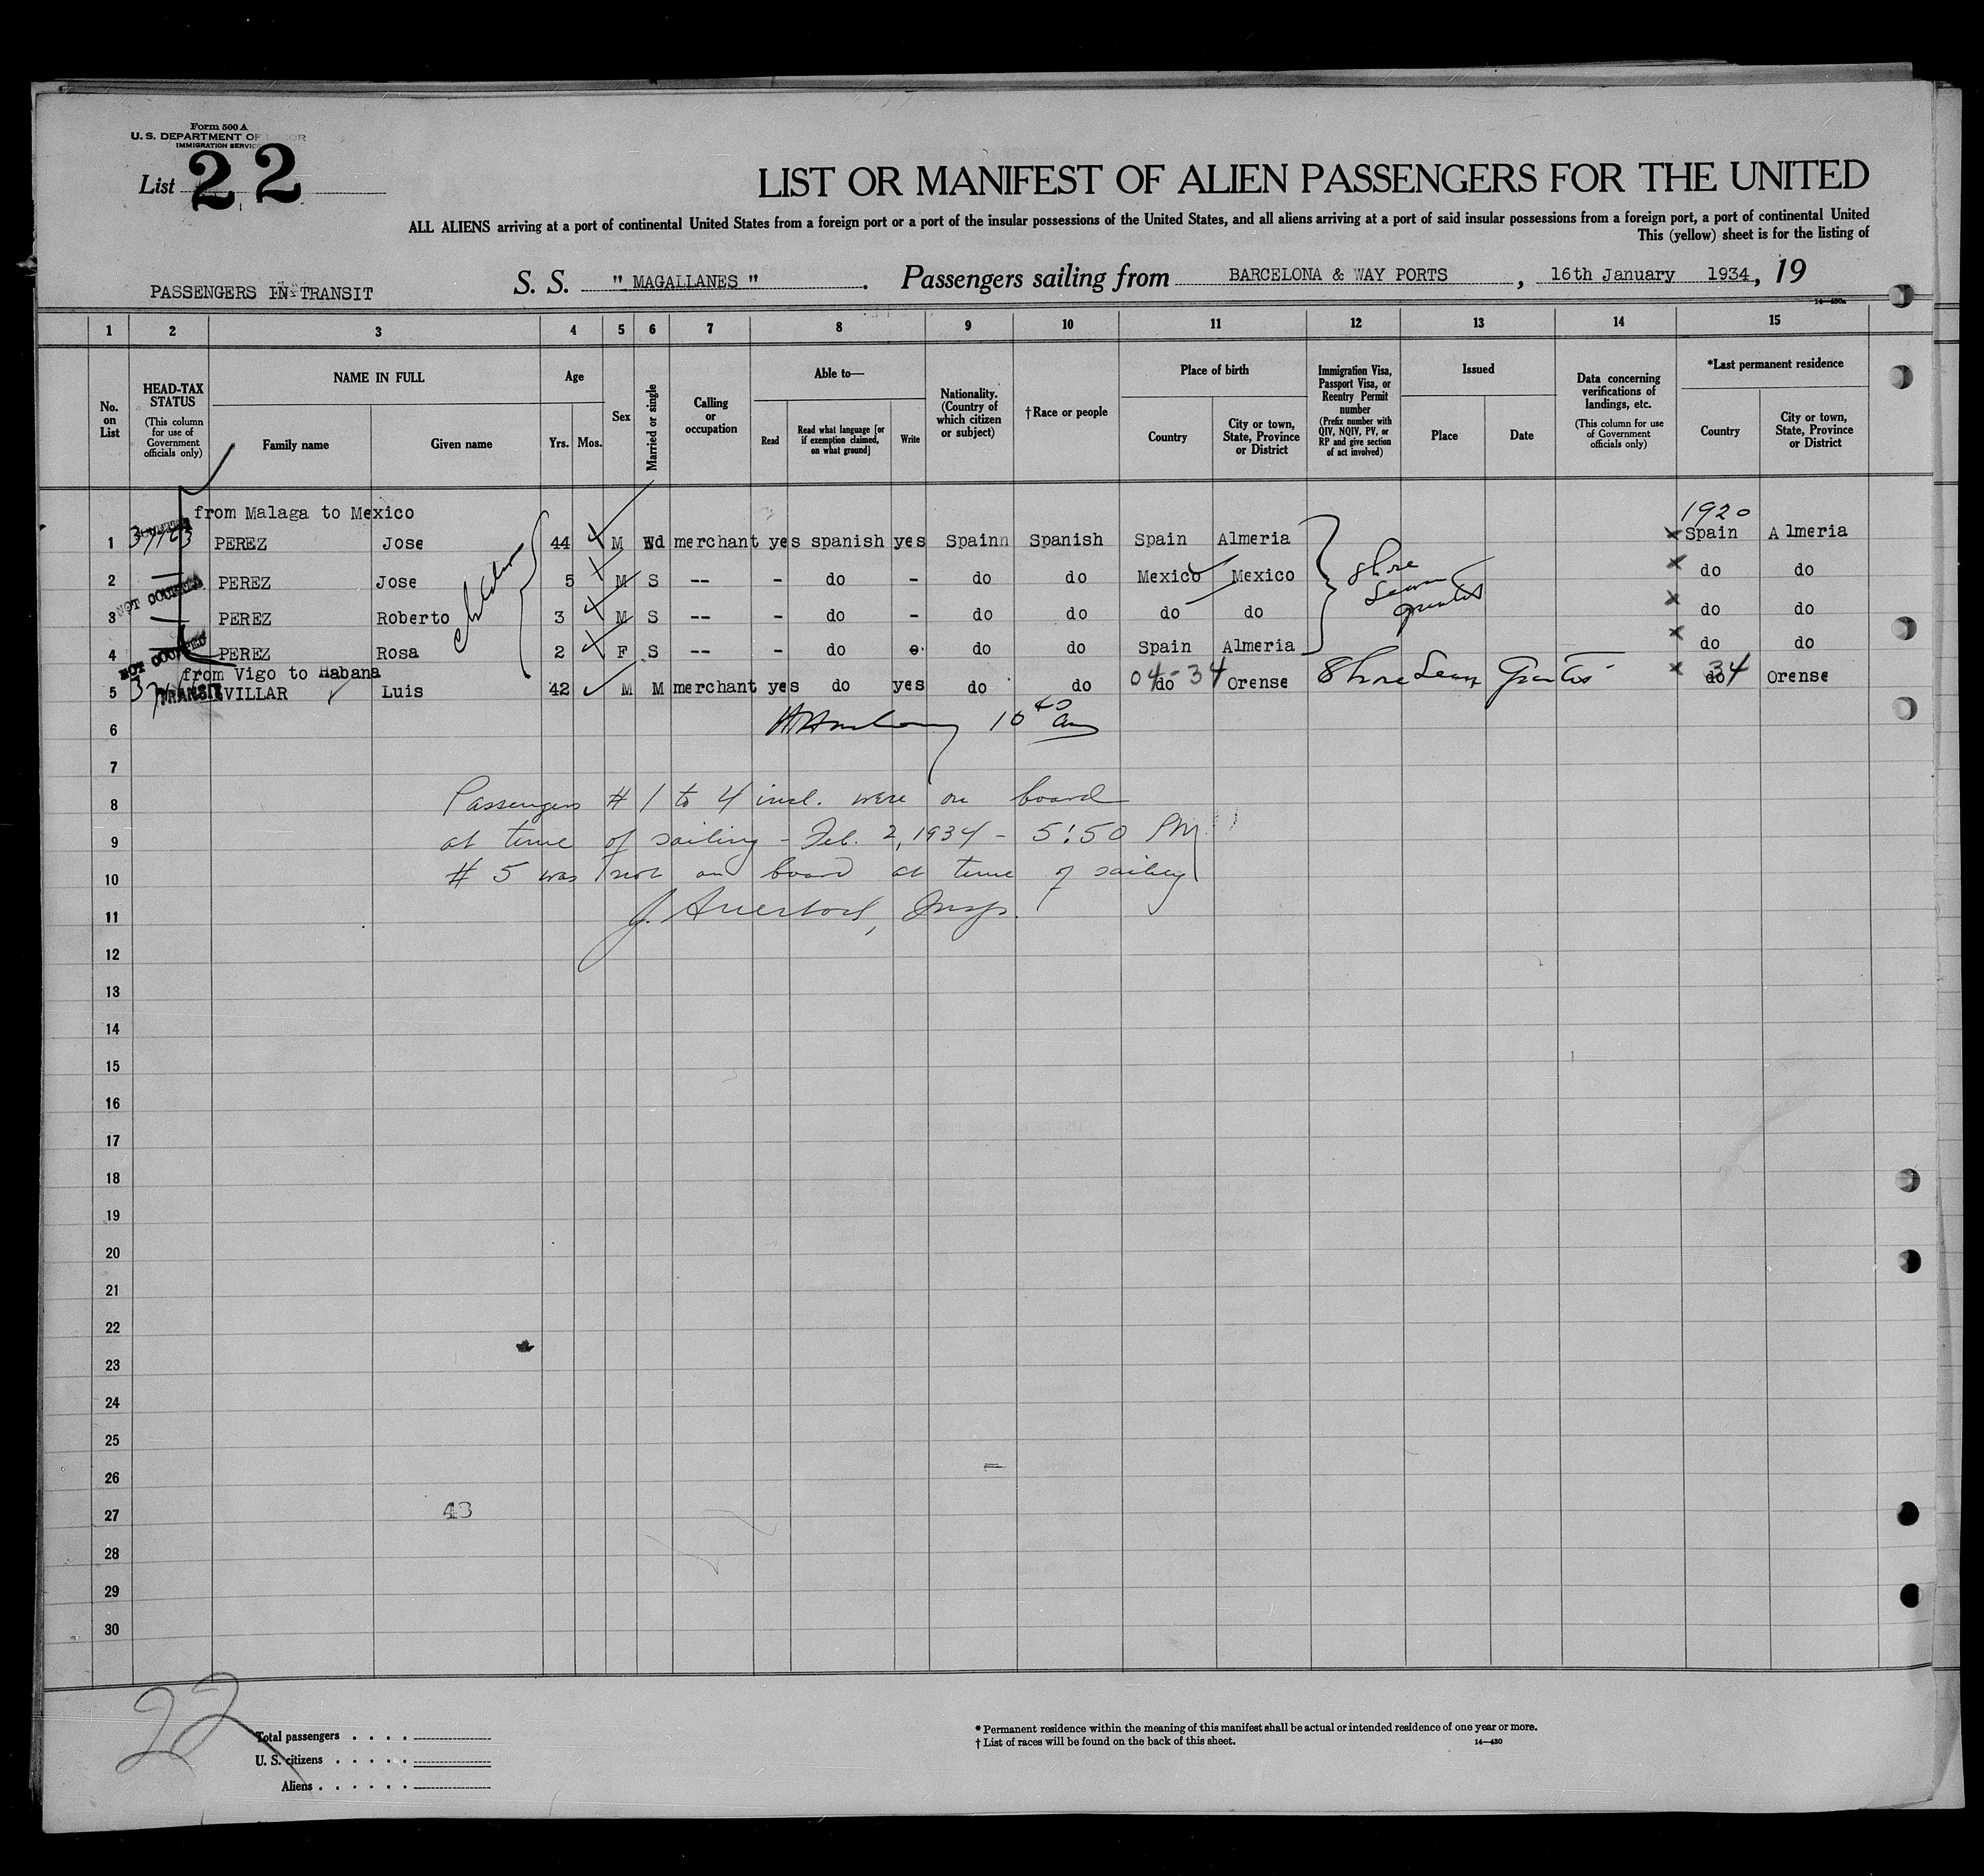 Form 500 A
U. S. DEPARTMENT OF LABOR
IMMIGRATION SERVICE
List 22
LIST OR MANIFEST OF ALIEN PASSENGERS FOR THE UNITED
ALL ALIENS arriving at a port of continental United States from a foreign port or a port of the insular possessions of the United States, and all aliens arriving at a port of said insular possessions from a foreign port, a port of continental United
This (yellow) sheet is for the listing of
PASSENGERS IN TRANSIT S. S. " MAGALLANES ". Passengers sailing from BARCELONA & WAY PORTS, 16th January 1934, 19
14—430a
1 2 3 4 5 6 7 8 9 10 11 12 13 14 15
No. on List
HEAD-TAX STATUS
(This column for use of Government officials only)
NAME IN FULL
Family name Given name
Age
Yrs. Mos.
Sex
Married or single
Calling or occupation
Able to—
Read
Read what language [or if exemption claimed, on what ground]
Write
Nationality. (Country of which citizen or subject)
†Race or people
Place of birth
Country
City or town, State, Province or District
Immigration Visa, Passport Visa, or Reentry Permit number
(Prefix number with QIV, NQIV, PV, or RP and give section of act involved)
Issued
Place Date
Data concerning verifications of landings, etc.
(This column for use of Government officials only)
*Last permanent residence
Country
City or town, State, Province or District
from Malaga to Mexico
1920
1 PEREZ Jose 44 M Wd merchant yes spanish yes Spainn Spanish Spain Almeria x Spain Almeria
2 PEREZ Jose 5 M S -- - do - do do Mexico Mexico x do do
NOT COUNTED
children
Shore Leave granted
3 PEREZ Roberto 3 M S -- - do - do do do do x do do
4 PEREZ Rosa 2 F S -- - do do do Spain Almeria x do do
NOT COUNTED
from Vigo to Habana
5 TRANSIT VILLAR Luis 42 M M merchant yes do yes do do do 04-34 Orense Shore Leave Granted x do 34 Orense
6 10 40 am
7
8 Passengers # 1 to 4 incl. were on board
9 at time of sailing - Feb. 2, 1934 - 5:50 PM.
10 # 5 was not on board at time of sailing
11 J. Auerbach, Insp.
12
13
14
15
16
17
18
19
20
21
22
23
24
25
26
27 43
28
29
30
22
Total passengers
U. S. citizens
Aliens
* Permanent residence within the meaning of this manifest shall be actual or intended residence of one year or more.
† List of races will be found on the back of this sheet. 14—430